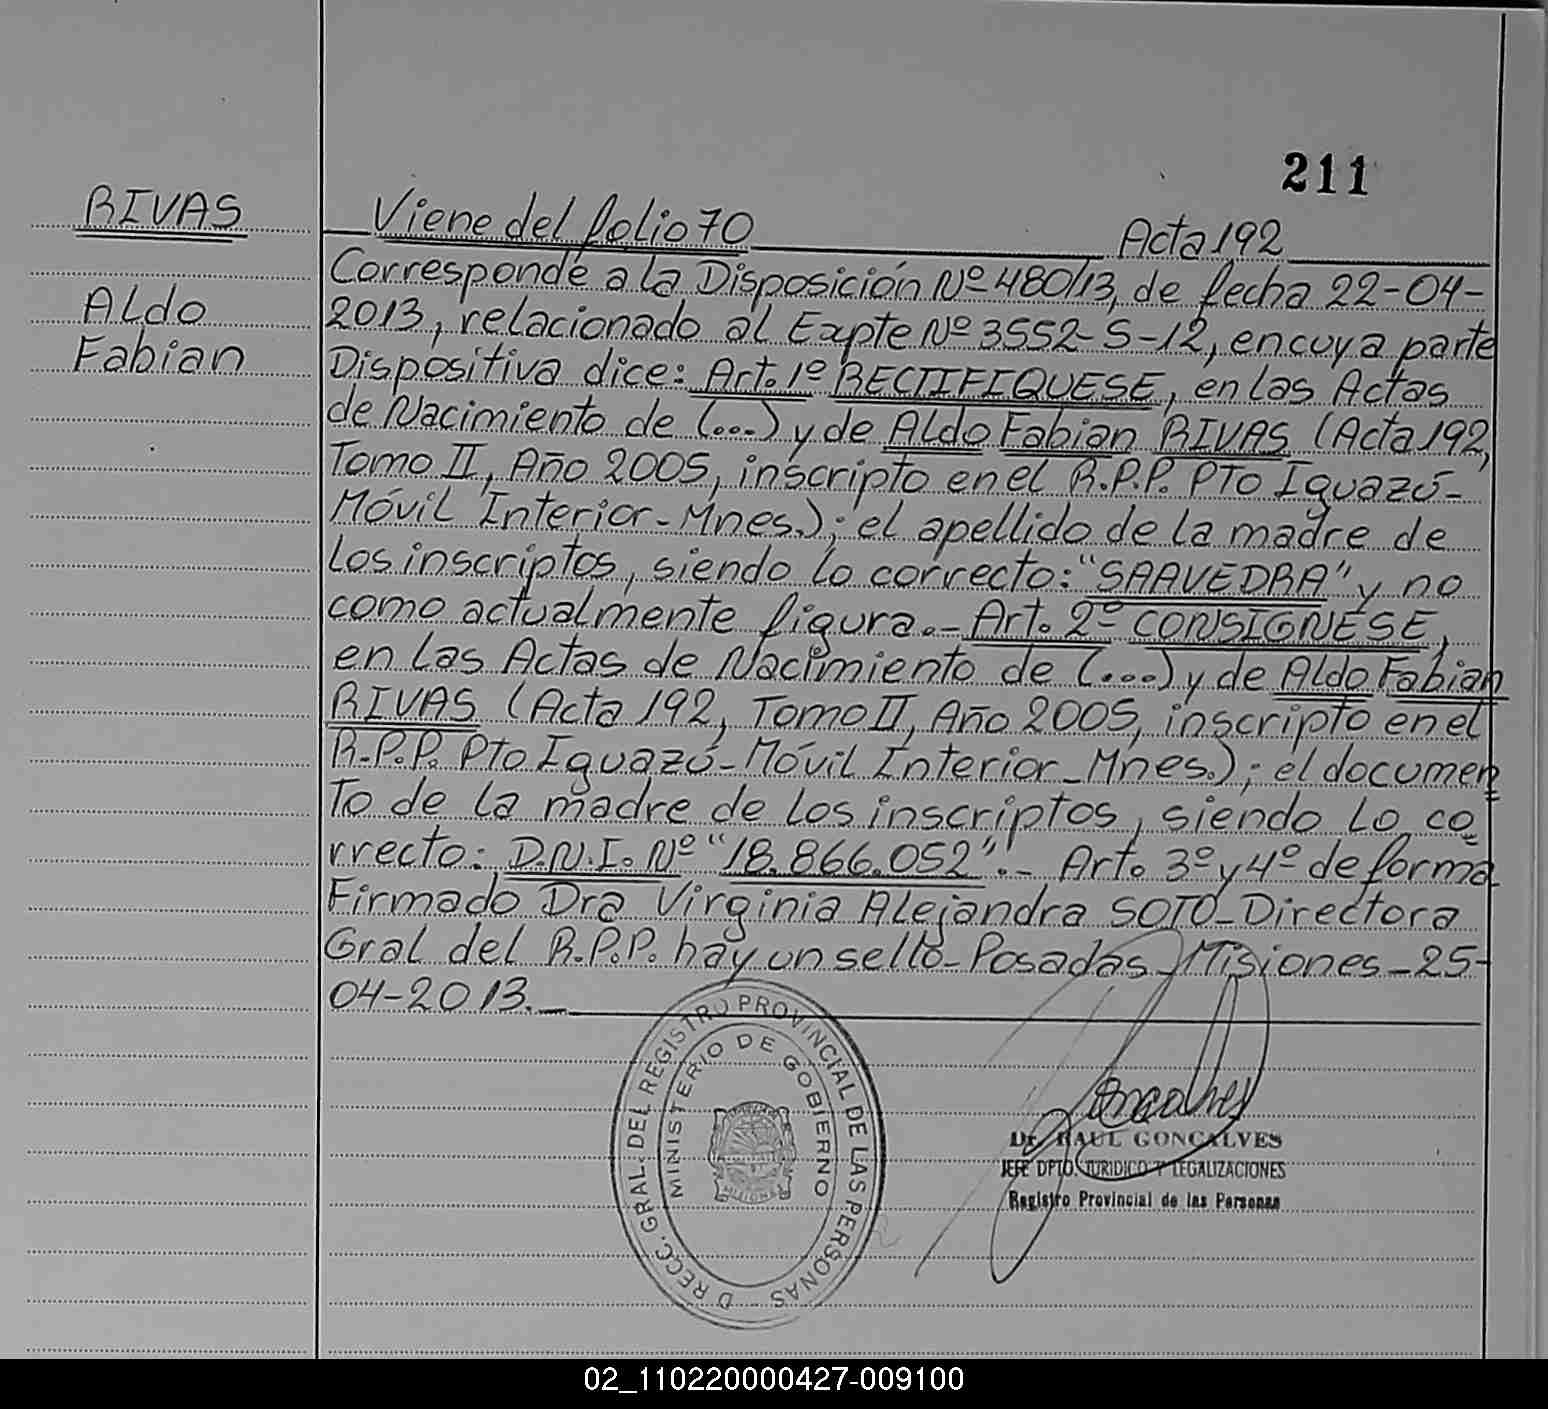 211
RIVAS
Aldo
Fabian
Viene del folio 70 Acta 192
Corresponde a la Disposición Nº 480/13, de fecha 22-04-
2013, relacionado al Expte Nº 3552-S-12, en cuya parte
Dispositiva dice: Art. 1º RECTIFIQUESE, en las Actas
de Nacimiento de (...) y de Aldo Fabian RIVAS (Acta 192,
Tomo II, Año 2005, inscripto en el R.P.P. Pto Iguazú-
Móvil Interior-Mnes.); el apellido de la madre de
los inscriptos, siendo lo correcto: "SAAVEDRA" y no
como actualmente figura.- Art. 2º CONSIGNESE,
en las Actas de Nacimiento de (....) y de Aldo Fabian
RIVAS (Acta 192, Tomo II, Año 2005, inscripto en el
R.P.P. Pto Iguazú-Móvil Interior-Mnes.); el documen
to de la madre de los inscriptos, siendo lo co
rrecto: D.N.I. Nº "18.866.052".- Art. 3º y 4º de forma
Firmado Dra Virginia Alejandra SOTO-Directora
Gral del R.P.P. hay un sello-Posadas-Misiones-25-
04-2013.-
DIRECC. GRAL. DEL REGISTRO PROVINCIAL DE LAS PERSONAS
MINISTERIO DE GOBIERNO
MISIONES
Dr. RAUL GONCALVES
JEFE DPTO. JURIDICO Y LEGALIZACIONES
Registro Provincial de las Personas
02_110220000427-009100